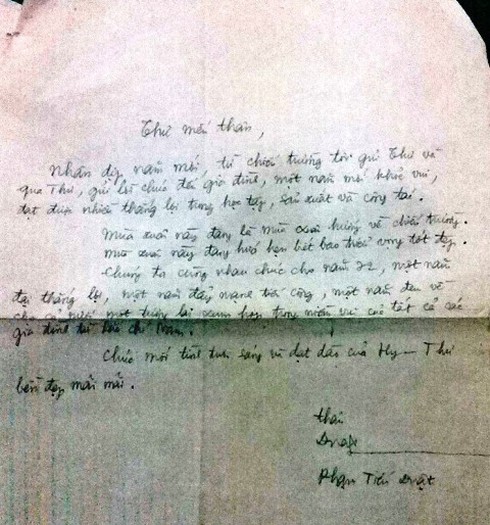 Thư mến thân,
Nhân dịp năm mới, từ chiến trường tôi gửi Thư và
qua Thư, gửi lời chúc đến gia đình, một năm mới khoẻ vui,
đạt được nhiều thắng lợi trong học tập, sản xuất và công tác.
Mùa xuân này đang là mùa xuân hướng về chiến trường.
Mùa xuân này đang hứa hẹn biết bao triển vọng tốt đẹp.
Chúng ta cùng nhau chúc cho năm 72, một năm
đại thắng lợi, một năm đẩy mạnh tiến công, một năm đem về
cho cả nước một tương lai trong niềm vui của tất cả các
gia đình
Chúc mối tình tươi sáng và dạt dào của Hy - Thư
bền đẹp mãi mãi.
thân
Duật
Phạm Tiến Duật